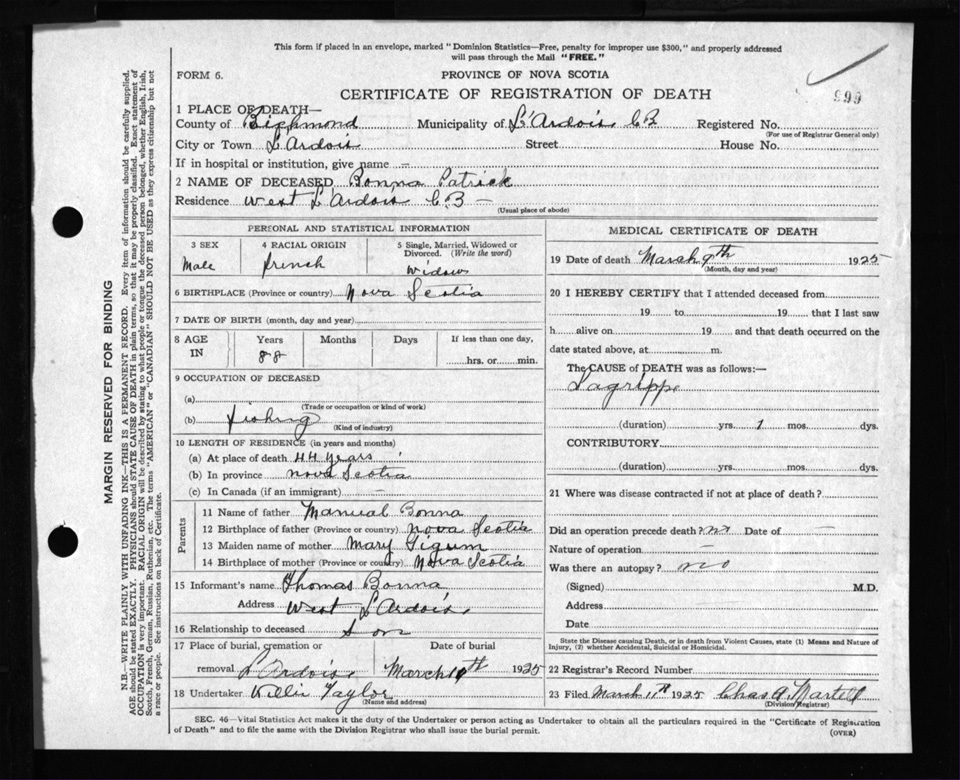 This form if placed in an envelope, marked "Dominion Statistics—Free, penalty for improper use $300," and properly addressed
will pass through the Mail "FREE."
FORM 6.
PROVINCE OF NOVA SCOTIA
CERTIFICATE OF REGISTRATION OF DEATH
999
1 PLACE OF DEATH—
County of Richmond Municipality of L'Ardois CB Registered No.
(For use of Registrar General only)
City or Town L'Ardois Street House No.
If in hospital or institution, give name —
2 NAME OF DECEASED Bonna Patrick
Residence West L'Ardois CB —
(Usual place of abode)
PERSONAL AND STATISTICAL INFORMATION
3 SEX 4 RACIAL ORIGIN 5 Single, Married, Widowed or
Divorced. (Write the word)
Male french Widow
6 BIRTHPLACE (Province or country) Nova Scotia
7 DATE OF BIRTH (month, day and year)
8 AGE Years Months Days If less than one day,
IN 88 hrs. or min.
9 OCCUPATION OF DECEASED
(a)
(Trade or occupation or kind of work)
(b) Fishing
(Kind of industry)
10 LENGTH OF RESIDENCE (in years and months)
(a) At place of death 44 years
(b) In province Nova Scotia
(c) In Canada (if an immigrant) —
Parents
11 Name of father Manual Bonna
12 Birthplace of father (Province or country) Nova Scotia
13 Maiden name of mother Mary
14 Birthplace of mother (Province or country) Nova Scotia
15 Informant's name Thomas Bonna
Address West L'Ardois
16 Relationship to deceased Son
17 Place of burial, cremation or Date of burial
removal L'Ardois March 10th 1925
18 Undertaker Willie Taylor
(Name and address)
MEDICAL CERTIFICATE OF DEATH
19 Date of death March 9th 1925
(Month, day and year)
20 I HEREBY CERTIFY that I attended deceased from
19 to 19 that I last saw
h alive on 19 and that death occurred on the
date stated above, at m.
The CAUSE of DEATH was as follows:—
Lagrippe
(duration) yrs. 1 mos. dys.
CONTRIBUTORY
(duration) yrs. mos. dys.
21 Where was disease contracted if not at place of death?
Did an operation precede death? no Date of —
Nature of operation —
Was there an autopsy? no
(Signed) M.D.
Address
Date
State the Disease causing Death, or in death from Violent Causes, state (1) Means and Nature of
Injury, (2) whether Accidental, Suicidal or Homicidal.
22 Registrar's Record Number
23 Filed March 11th 1925 Chas A. Martell
(Division Registrar)
SEC. 46—Vital Statistics Act makes it the duty of the Undertaker or person acting as Undertaker to obtain all the particulars required in the "Certificate of Registration
of Death" and to file the same with the Division Registrar who shall issue the burial permit.
(OVER)
MARGIN RESERVED FOR BINDING
N.B.—WRITE PLAINLY WITH UNFADING INK—THIS IS A PERMANENT RECORD. Every item of information should be carefully supplied.
AGE should be stated EXACTLY. PHYSICIANS should STATE CAUSE OF DEATH in plain terms, so that it may be properly classified. Exact statement of
OCCUPATION is very important. RACIAL ORIGIN will be described by stating to what people or tongue the deceased person belonged, whether English, Irish,
Scotch, French, German, Russian, Ruthenian, etc. The terms "AMERICAN" or "CANADIAN" SHOULD NOT BE USED as they express citizenship but not
a race or people. See instructions on back of Certificate.